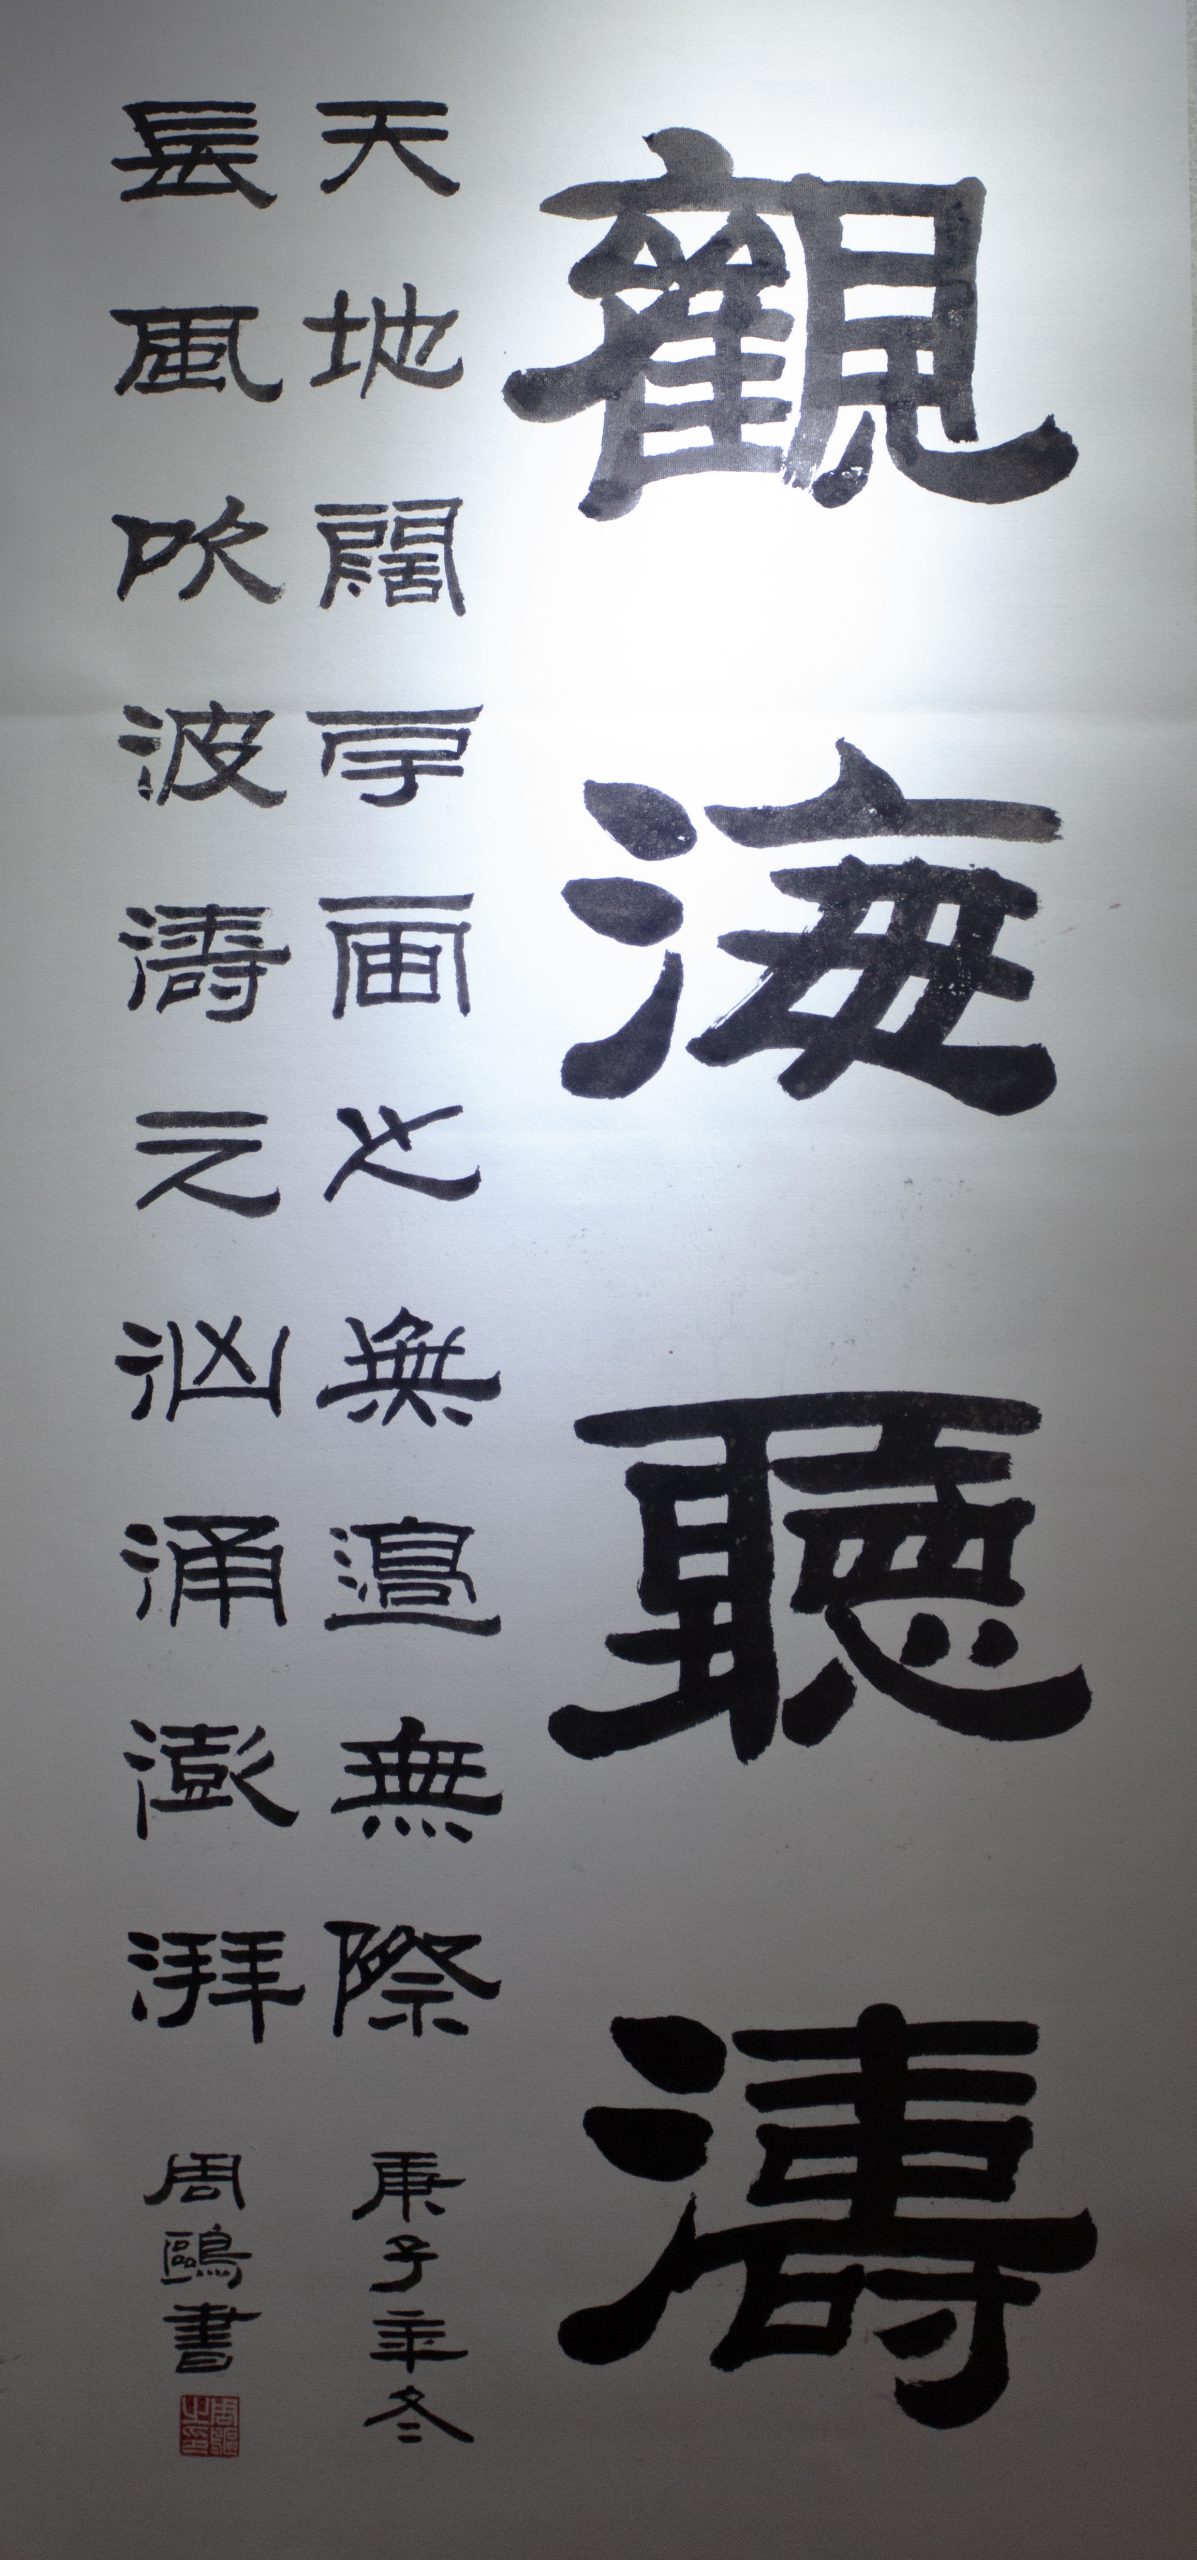 觀海聽濤
天地闊乎而心無邊無際 庚子年冬
長風吹波濤之洶涌澎湃 周鷗書
周鷗之印